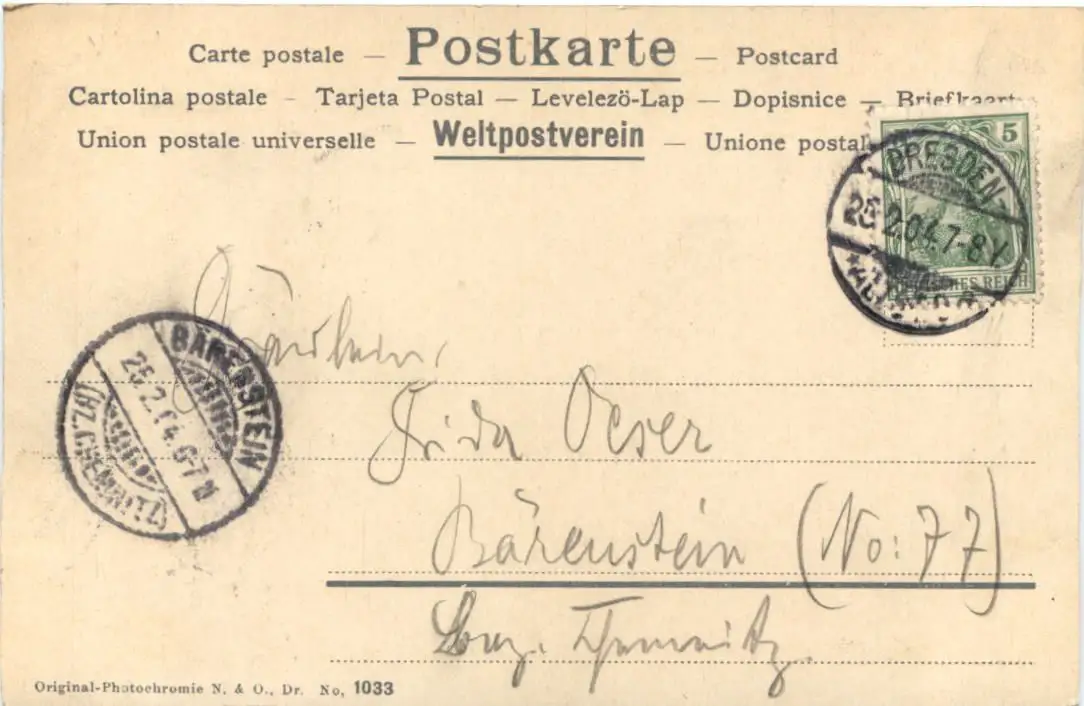 Carte postale — Postkarte — Postcard
Cartolina postale – Tarjeta Postal — Levelezö-Lap — Dopisnice — Briefkaart
Union postale universelle — Weltpostverein — Unione postal
5
DRESDEN
25.2.04.7-8V.
DEUTSCHES REICH
BÄRENSTEIN
25.2.04.6-7N
(BZ.CHEMNITZ)
Fräulein,
Frida Oeser
Bärenstein (No: 77)
Bez. Chemnitz
Original-Photochromie N. & O., Dr. No, 1033